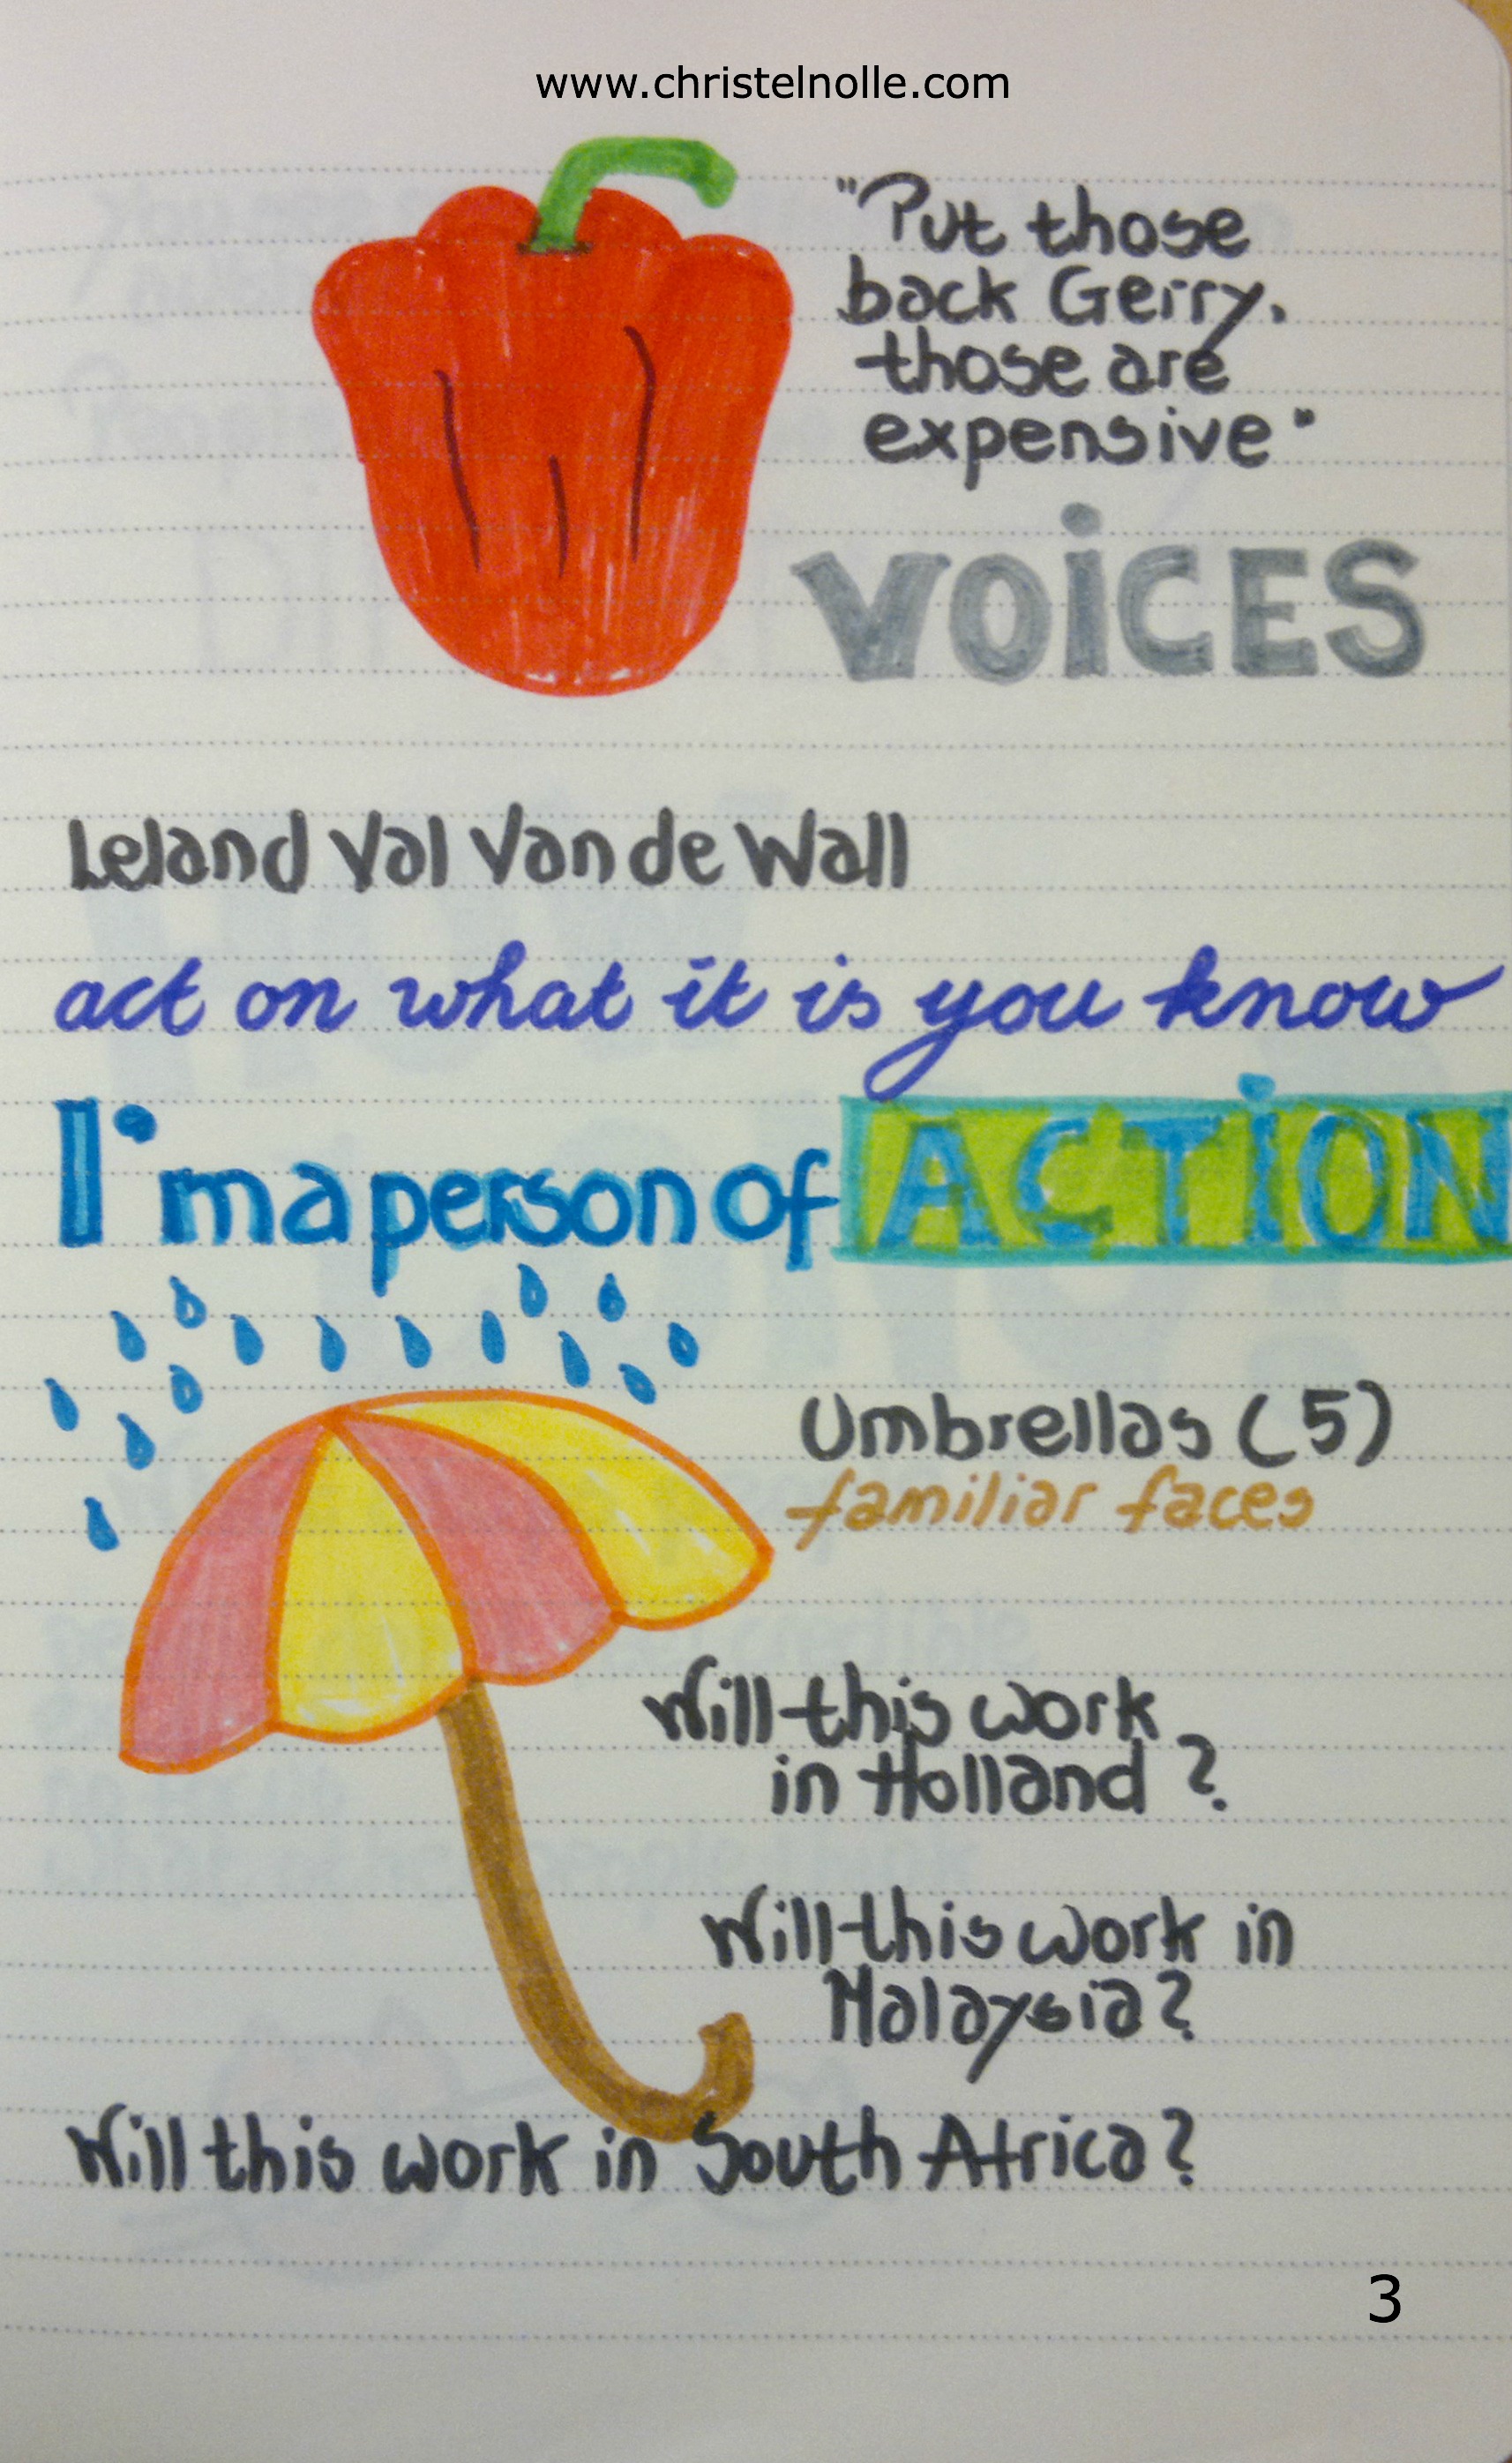 www.christelnolle.com
"Put those
back Gerry.
those are
expensive"
VOiCES
Leland Val Van de Wall
act on what it is you know
I'm a person of ACTiON
Umbrellas (5)
familiar faces
Will this work
in Holland?
Will this work in
Malaysia?
Will this work in South Africa?
3